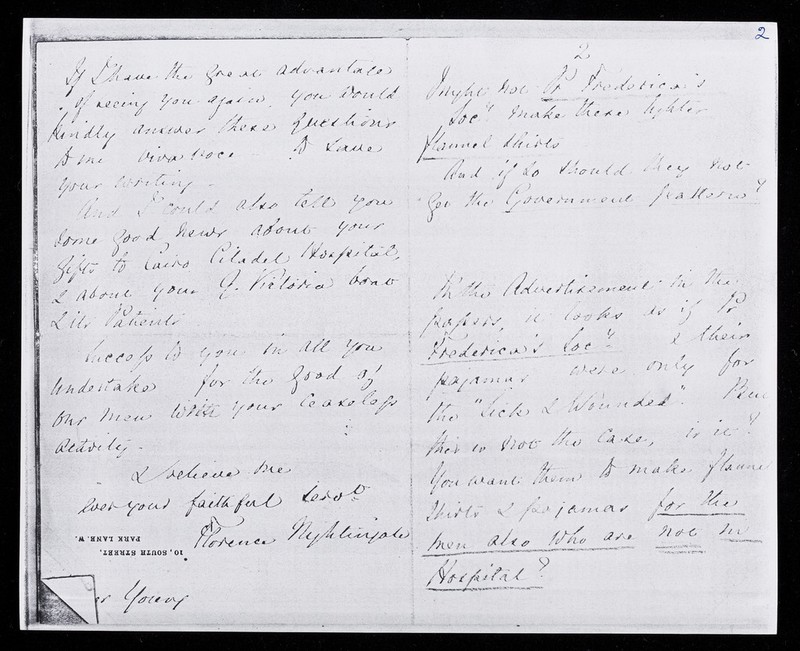 2
If I have the great advantage
of seeing you again, you would
kindly answer these questions
to me viva voce to save
your writing.
And I could also tell you
some good news about your
Gifts to Cairo Citadel Hospital,
& about your Q. Victoria boat
& its Patients
Success to you in all you
undertake for the good of
our men with your ceaseless
activity.
& believe me
ever your faithful servt
Florence Nightingale
10, SOUTH STREET,
PARK LANE. W.
Young
2
Might not Pr Frederica's
Socy make these lighter
flannel shirts
And if so should they not
get the Government pattern?
In the Advertisement in the
papers, it looks as if Pr
Frederica's Socy & their
pajamas were only for
the "Sick & Wounded". But
this is not the case, is it?
You want them to make flannel
shirts & pajamas for the
men also who are not in
Hospital?